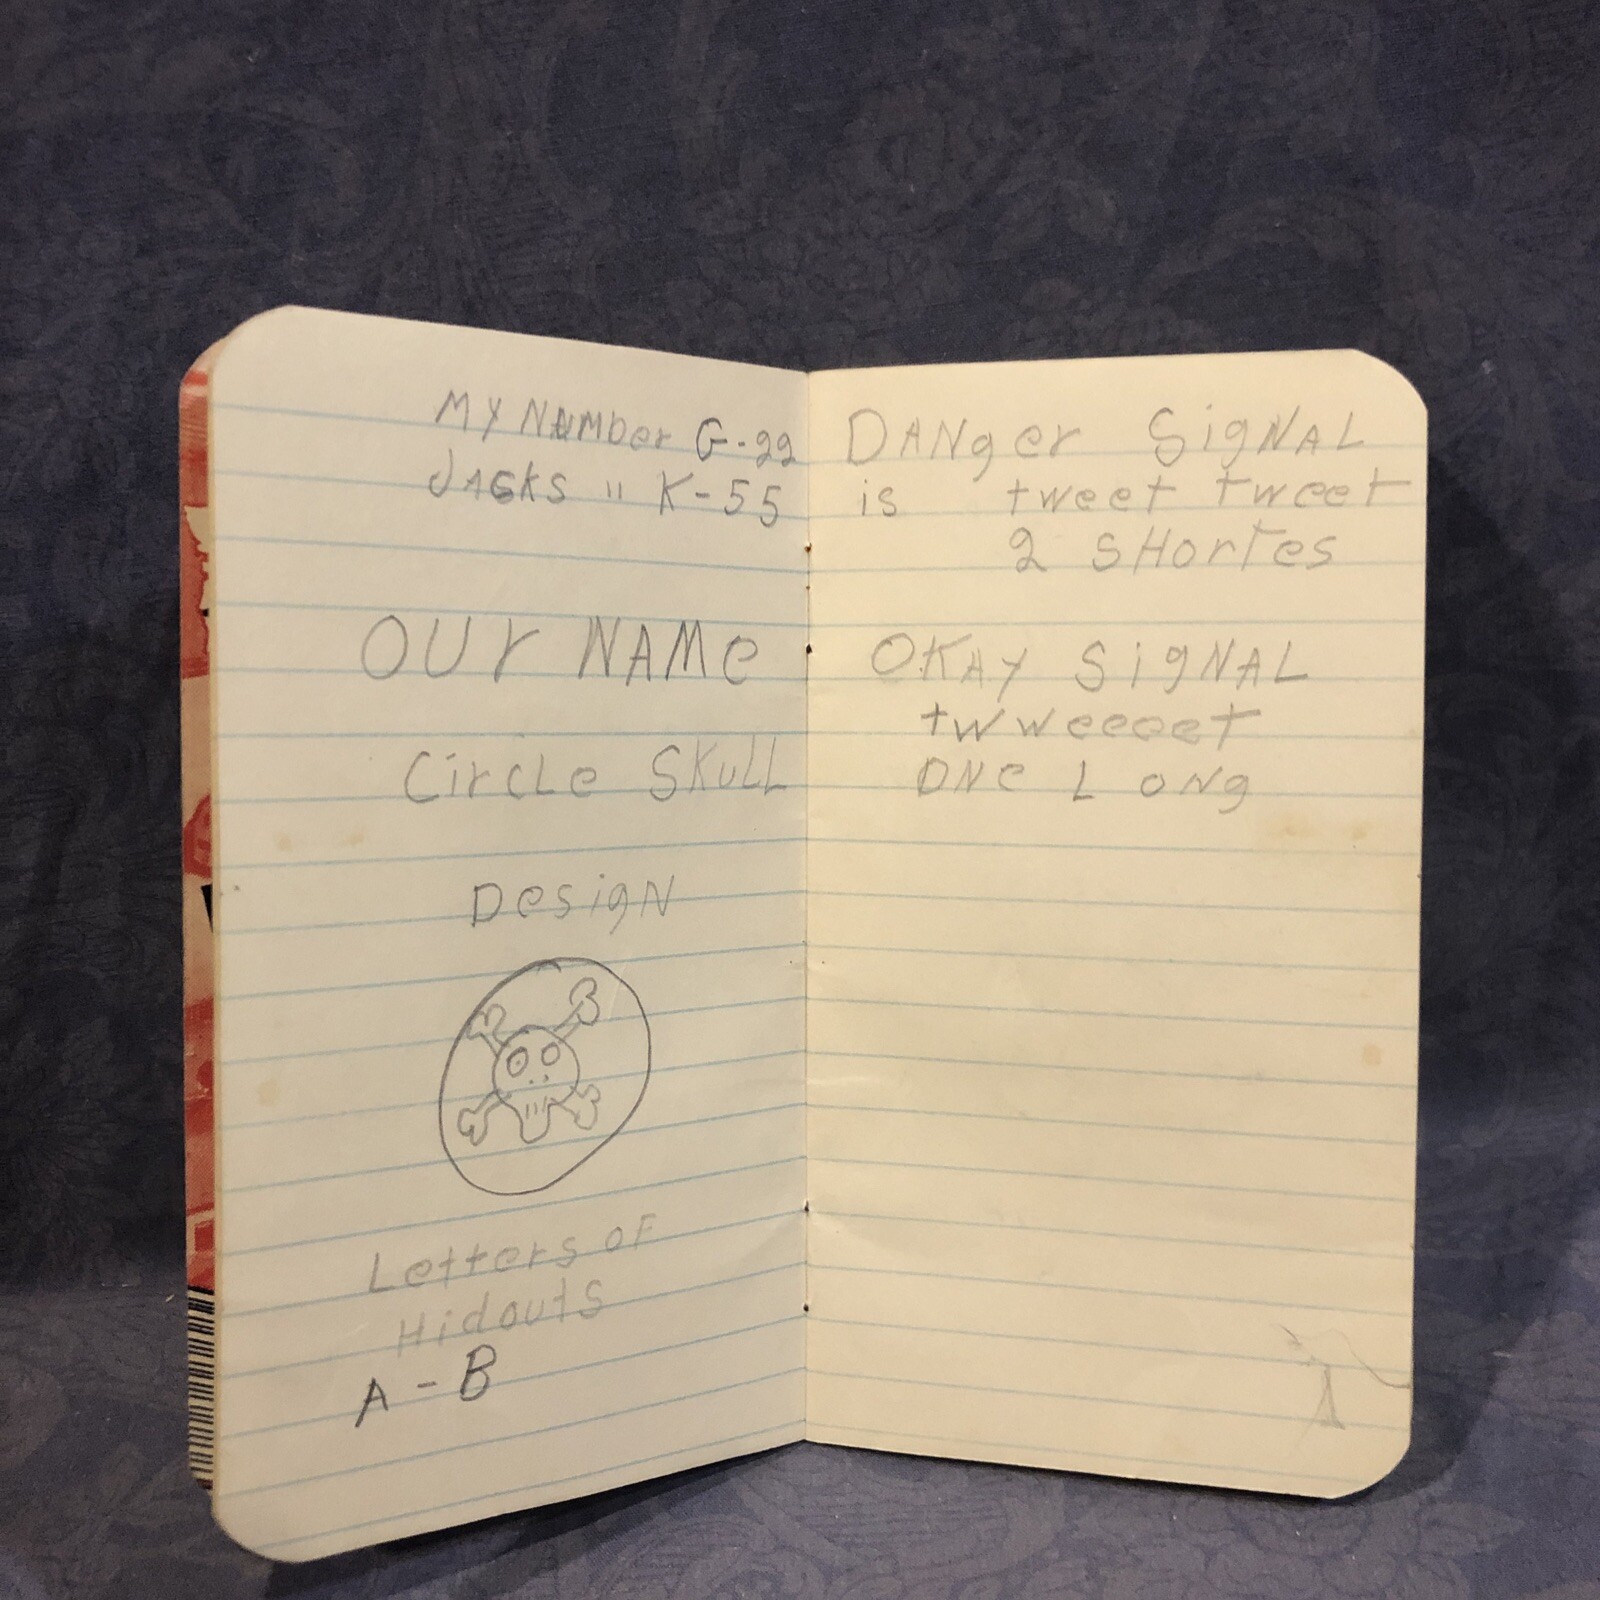 My Number G-22
JAcks " K-55
OUr NAMe
CircLe SKuLL
DesigN
Letters oF
Hidouts
A - B
DANger SigNAL
is tweet tweet
2 SHorTes
OKAY SigNAL
twweeeet
ONe LONg